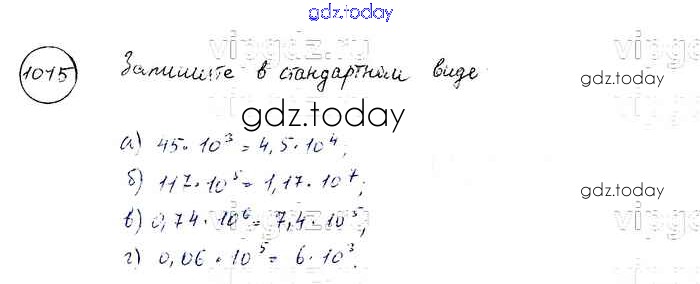 gdz.today
vipgdz.ru
1015 Запишите в стандартном виде
gdz.today
gdz.today
а) 45·10³ = 4,5·10⁴;
б) 117·10⁵ = 1,17·10⁷;
gdz.today
в) 0,74·10⁶ = 7,4·10⁵;
г) 0,06·10⁵ = 6·10³.